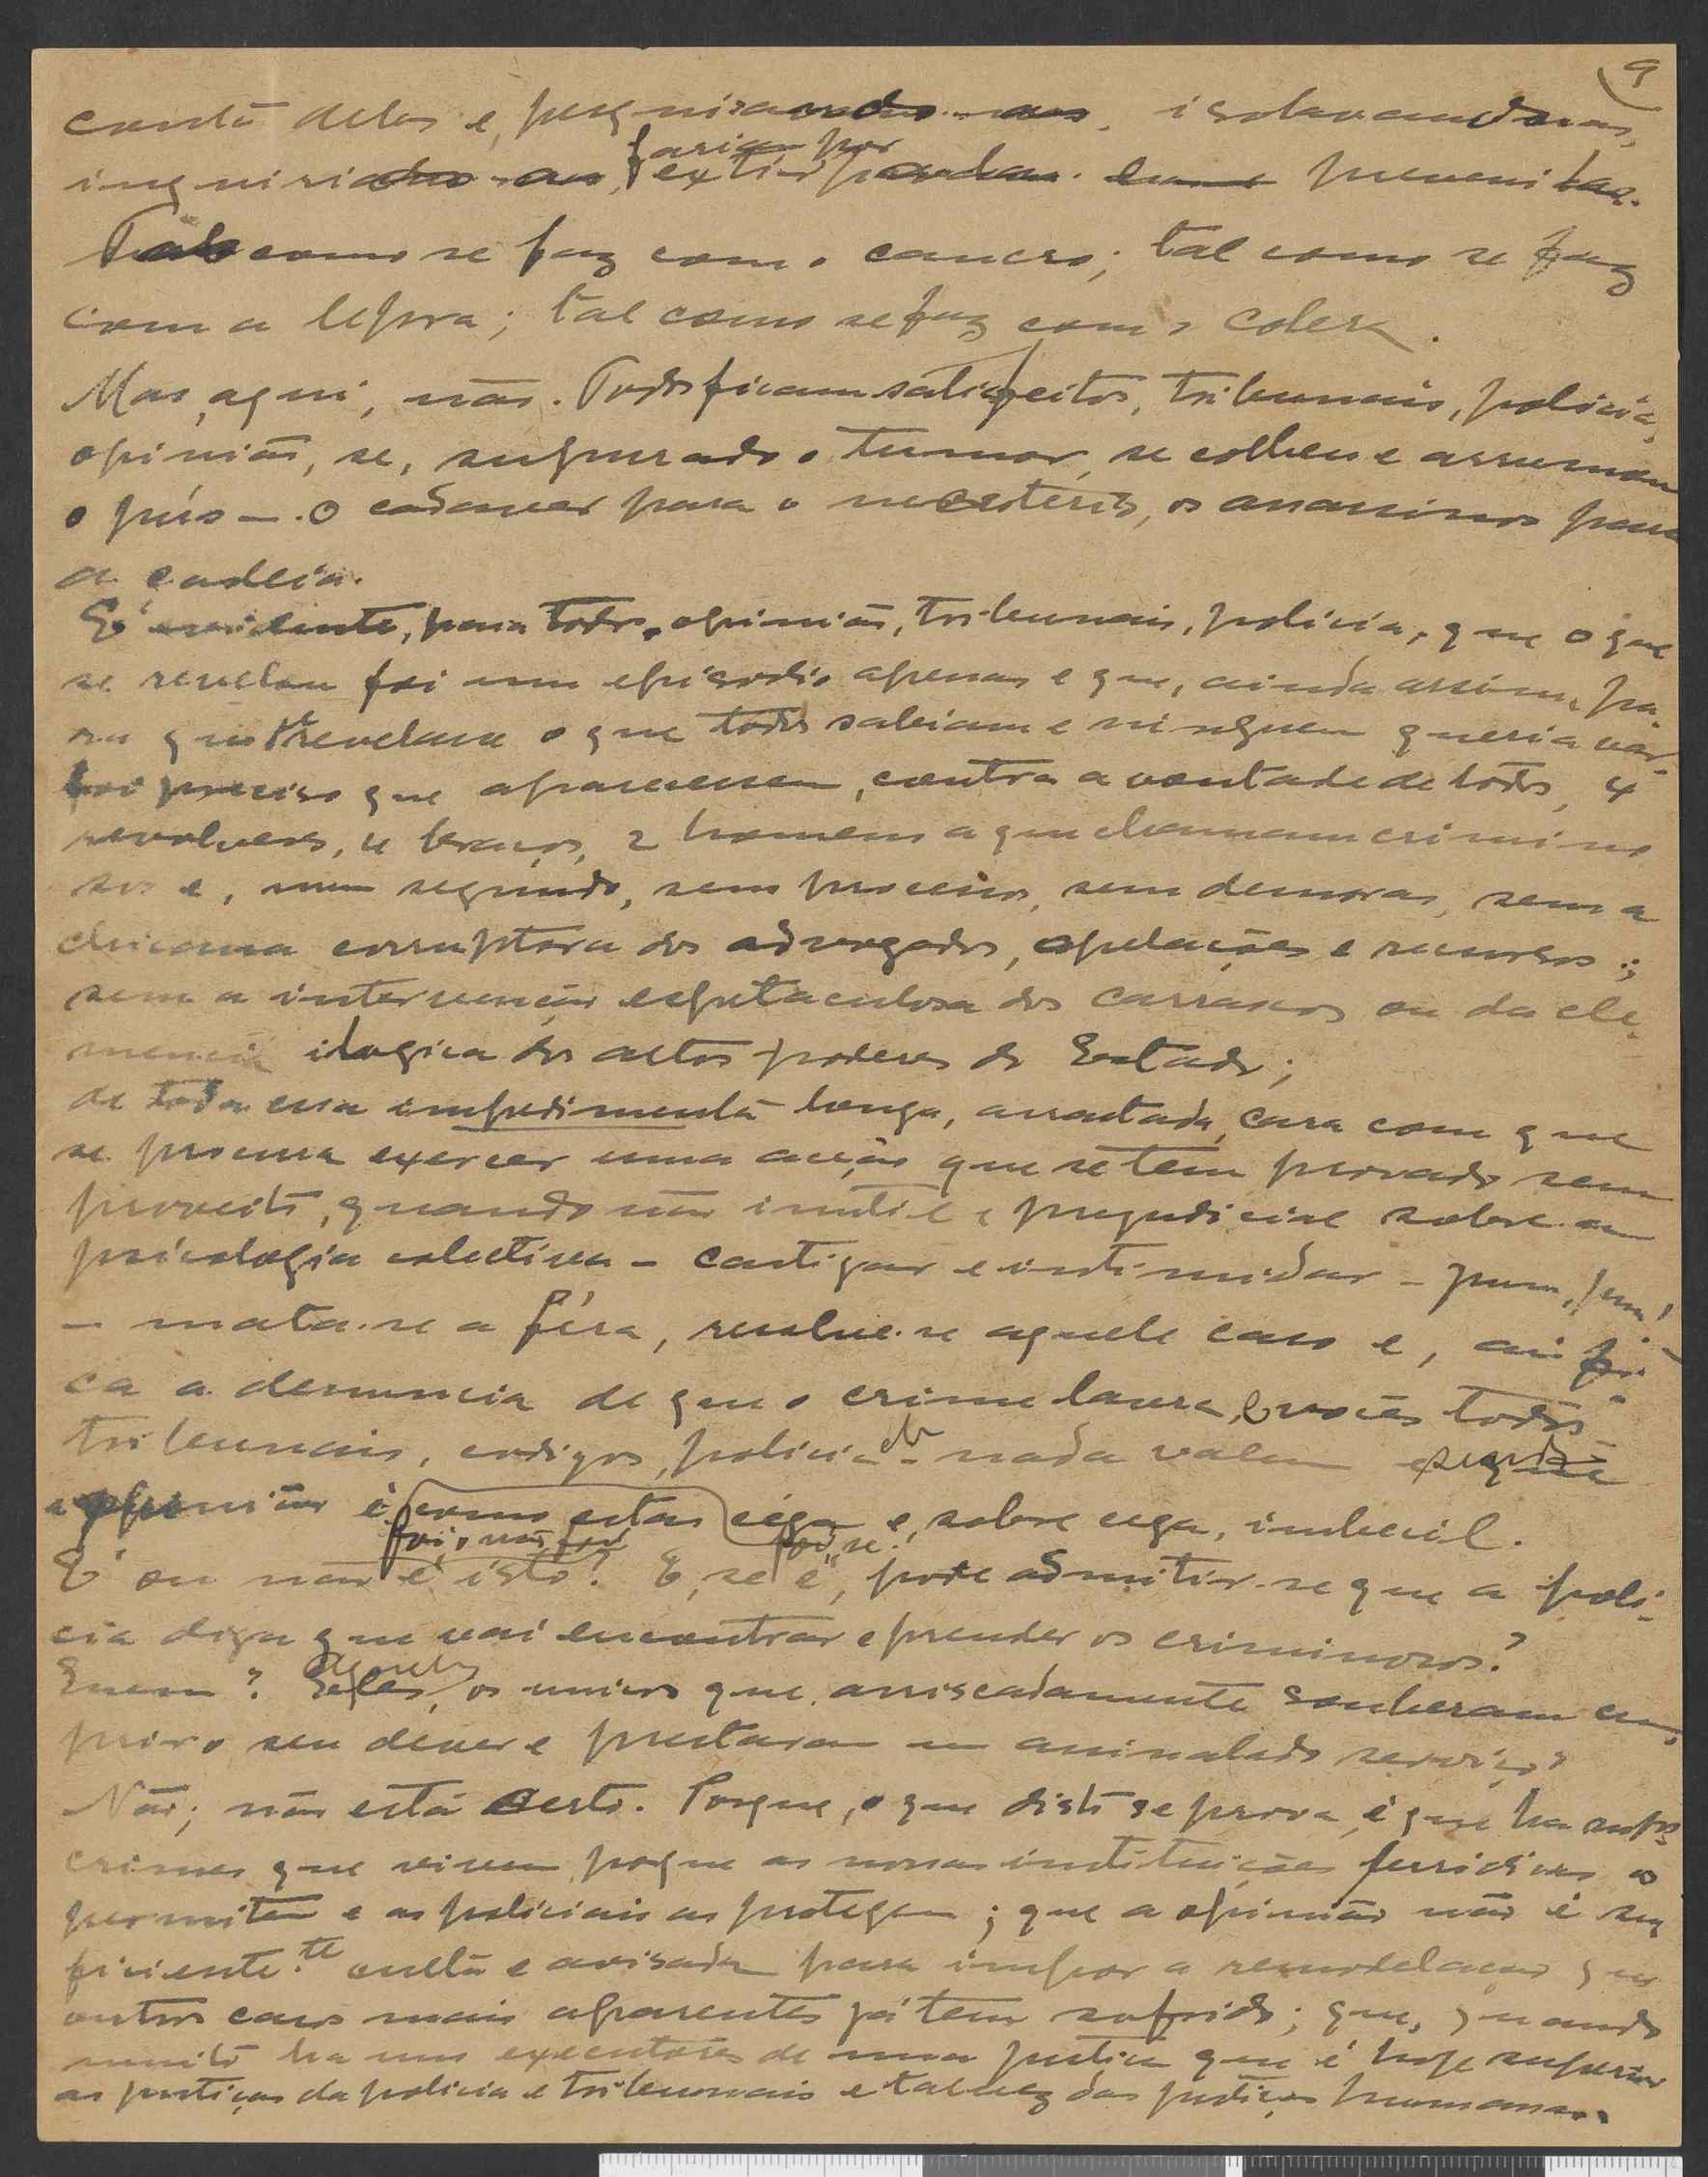 9
conta delas e, pesquisando-as, isolavam-nas,
inquiriam, fariam por extirpa-las e preveni-las.
Tal como se faz com o cancro; tal como se faz
com a lepra; tal como se faz com o colera.
Mas, aqui, não. Todos ficam satisfeitos, tribunais, policia,
opinião, se, supurado o tumor, se colheu e arrumou
o pús —. O cadaver para o necrotério, os assassinos para
a cadeia.
E' evidente, para todos, opinião, tribunais, policia, que o que
se revelou foi um episodio apenas e que, ainda assim, pa-
ra que se revelasse o que todos sabiam e ninguem queria vêr,
foi preciso que aparecessem, contra a vontade de todos, 4
revolveres, 4 braços, 2 homens a que chamam crimino
sos e, num segundo, sem processos, sem demoras, sem a
chicana corruptora dos advogados, apelações e recursos;
sem a intervenção espetaculosa dos carrascos ou da cle-
mencia ilogica dos altos poderes do Estado;
de toda essa impedimenta longa, arrastada, cara com que
se procura exercer uma acção que se tem provado sem
proveito, quando não inutil e prejudicial sobre a
psicologia colectiva - castigar e intimidar - pum, pum!
— mata-se a féra, resolve-se aquele caso e, ai fi-
ca a denuncia de que o crime lavra, e vocês todos -
tribunais, codigos, policia etc - nada valem
a opinião é como estas cega e, sobre cega, imbecil.
foi, não foi fosse
E' ou não é isto? E, se é, pode admitir-se que a poli-
cia diga que vai encontrar e prender os criminosos?
Quem? Aqueles, os unicos que arriscadamente souberam cum-
prir o seu dever e prestaram um assinalado serviço?
Não; não está certo. Porque, o que disto se prova, é que ha
crimes que vivem porque as nossas instituições juridicas os
permitem e as policiais os protegem; que a opinião não é su
ficiente.te culta e avisada para impor a remodelação que
outros casos mais aparentes já tem sofrido; que, quando
muito ha uns executores de uma justiça que é hoje superior
ás justiças da policia e tribunais e talvez das justiças humanas.